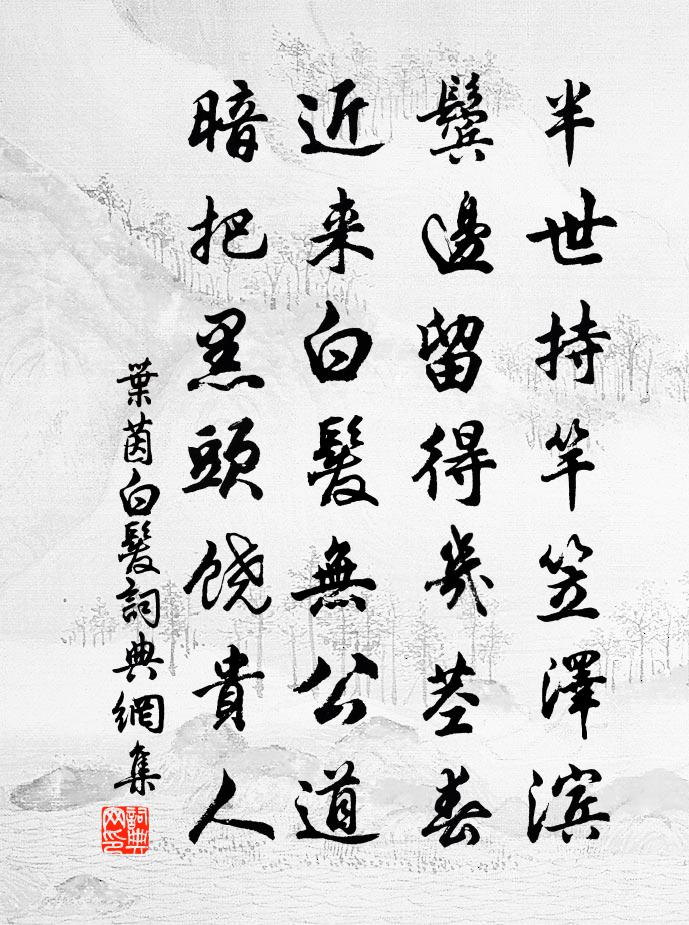 半世持竿笠澤滨
鬓邊留得幾茎春
近来白髮無公道
暗把黑頭饶貴人
葉茵白髮詞典網集
詞典网印